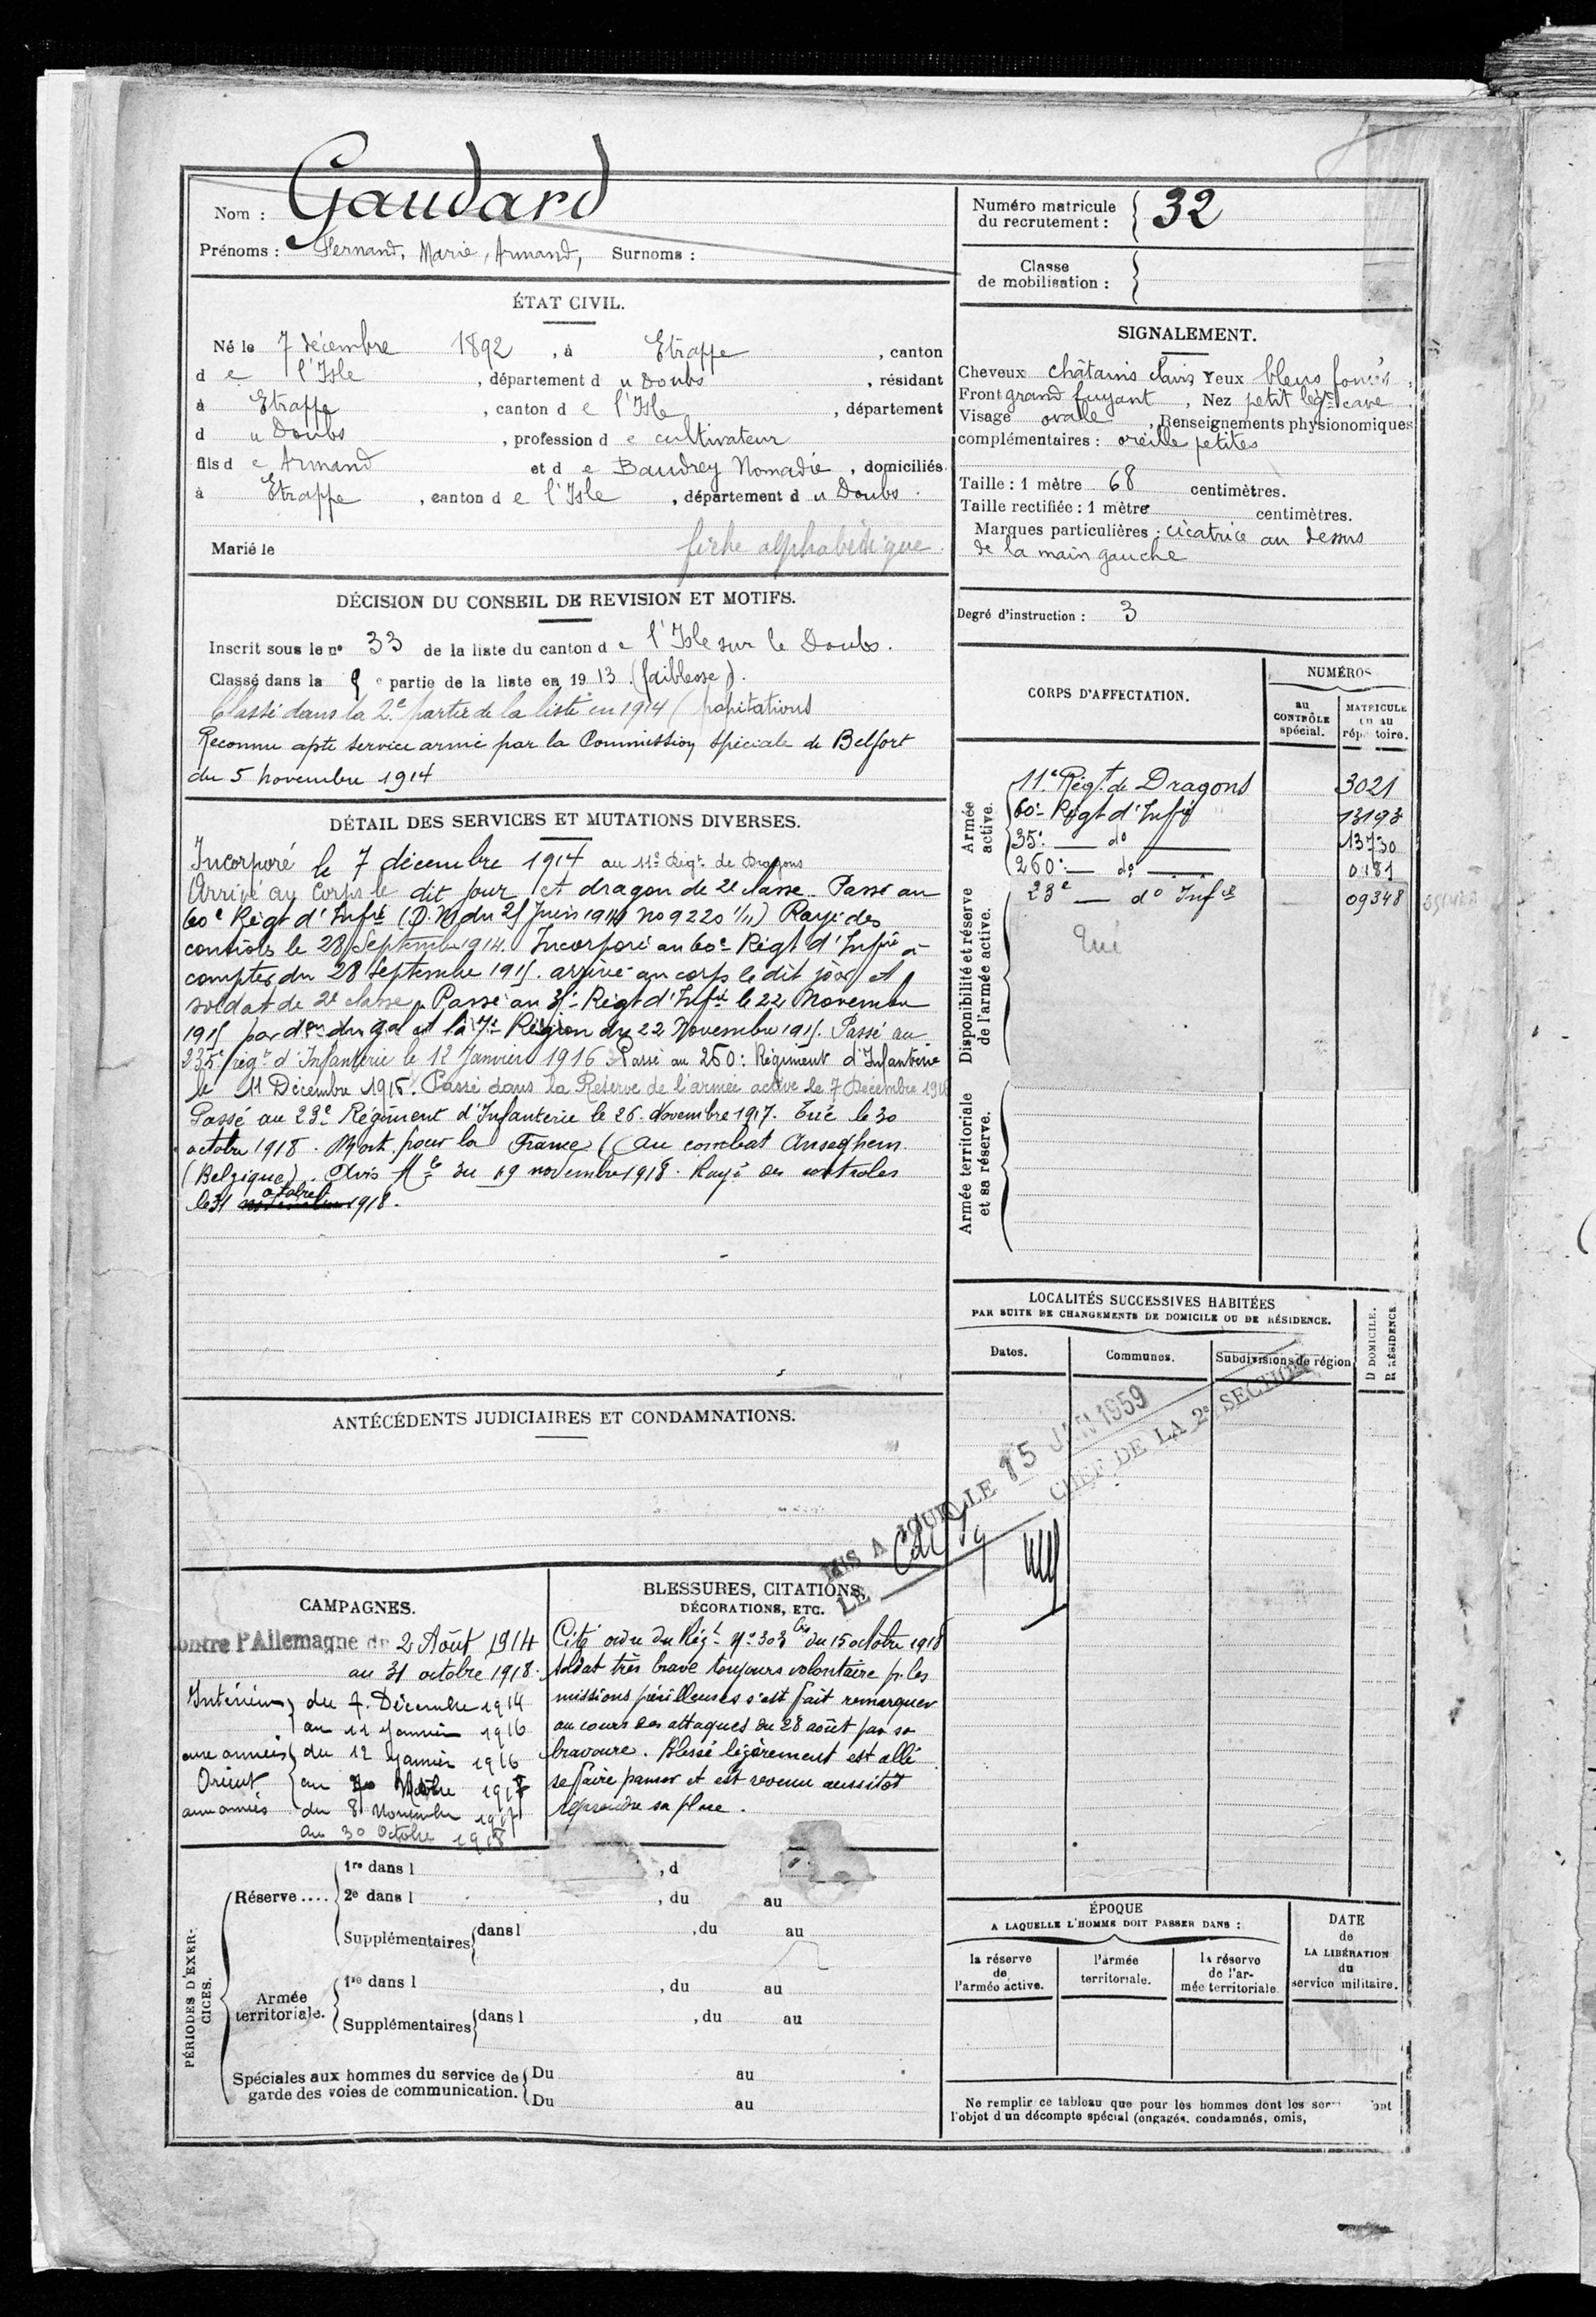 Nom : Gaudard
Prénoms : Fernand, Marie, Armand, Surnoms :
Numéro matricule du recrutement : 32
Classe de mobilisation :
ÉTAT CIVIL.
Né le 7 décembre 1892, à Etrappe, canton
de l'Isle, département du Doubs, résidant
à Etrappe, canton de l'Isle, département
du Doubs, profession de cultivateur
fils de Armand et de Baudrey Nomadie, domiciliés
à Etrappe, canton de l'Isle, département du Doubs.
Marié le fiche alphabétique
SIGNALEMENT.
Cheveux châtains clairs Yeux bleus foncés,
Front grand fuyant, Nez petit cave
Visage ovale, Renseignements physionomiques
complémentaires : oreille petites
Taille : 1 mètre 68 centimètres.
Taille rectifiée : 1 mètre centimètres.
Marques particulières : cicatrice au dessus
de la main gauche
Degré d'instruction : 3
DÉCISION DU CONSEIL DE REVISION ET MOTIFS.
Inscrit sous le no 33 de la liste du canton de l'Isle sur le Doubs.
Classé dans la 5e partie de la liste en 1913 (faiblesse).
Classé dans la 2e partie de la liste en 1914 (palpitations
Reconnu apte service armé par la Commission spéciale de Belfort
du 5 novembre 1914
DÉTAIL DES SERVICES ET MUTATIONS DIVERSES.
Incorporé le 7 décembre 1914 au 11e Régt. de Dragons
Arrivé au Corps le dit jour et dragon de 2e classe. Passé au
60e Régt d'Infie (D.M du 25 Juin 191 no 9220 1/11) Rayé des
contrôles le 28 Septembre 1914. Incorporé au 60e Régt d'Infie à
compter du 28 Septembre 1915. arrivé au corps le dit jour et
soldat de 2e classe. Passé au 35e Régt d'Infie le 22 Novembre
1915 par don du gal ct la 7e Région du 22 Novembre 1915. Passé au
235e régt d'Infanterie le 12 Janvier 1916 Passé au 260e Régiment d'Infanterie
le 11 Décembre 1916. Passé dans la Réserve de l'armée active le 7 Décembre 191
Passé au 23e Régiment d'Infanterie le 26 Novembre 1917. Tué le 30
octobre 1918. Mort pour la France (au combat Anseghem
(Belgique). Avis Mle du 19 novembre 1918. Rayé des contrôles
le 31 octobre 1918.
CORPS D'AFFECTATION.
NUMÉROS
au CONTRÔLE spécial.
MATRICULE ou au répertoire.
Armée active.
11e Régt. de Dragons 3021
60e Régt d'Infie 13193
35e — do — 13730
260e — do — 0181
Disponibilité et réserve de l'armée active.
23e — do Infie 09348
Tué
Armée territoriale et sa réserve.
LOCALITÉS SUCCESSIVES HABITÉES
PAR SUITE DE CHANGEMENTS DE DOMICILE OU DE RÉSIDENCE.
Dates. Communes. Subdivisions de région
D DOMICILE.
R RÉSIDENCE
MIS A JOUR LE 15 JAN 1959
LE CHEF DE LA 2e SECTION
ANTÉCÉDENTS JUDICIAIRES ET CONDAMNATIONS.
CAMPAGNES.
contre l'Allemagne du 2 Août 1914
au 31 octobre 1918.
Intérieur du 7 Décembre 1914
au 11 Janvier 1916
aux armées du 12 Janvier 1916
Orient au 1917
aux armées du 8 Novembre 1917
au 30 Octobre 1918
BLESSURES, CITATIONS,
DÉCORATIONS, ETC.
Cité ordre du Régt No 303 bis du 15 octobre 1918
soldat très brave toujours volontaire p. les
missions périlleuses s'est fait remarquer
au cours des attaques du 28 août par sa
bravoure. Blessé légèrement est allé
se faire panser et est revenu aussitôt
reprendre sa place.
PÉRIODES D'EXERCICES.
Réserve....
1re dans l , d
2e dans l , du au
Supplémentaires dans l , du au
Armée territoriale.
1re dans l , du au
Supplémentaires dans l , du au
Spéciales aux hommes du service de garde des voies de communication.
Du au
Du au
ÉPOQUE
A LAQUELLE L'HOMME DOIT PASSER DANS :
la réserve de l'armée active.
l'armée territoriale.
la réserve de l'armée territoriale.
DATE de LA LIBÉRATION du service militaire.
Ne remplir ce tableau que pour les hommes dont les ser ont
l'objet d'un décompte spécial (engagés, condamnés, omis,